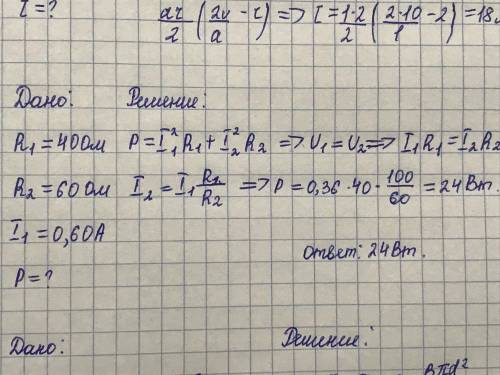 I = ? aτ/2 (2v/a - τ) => I = 1·2/2 (2·10/1 - 2) = 18
Дано: Решение:
R₁ = 40 Ом P = I₁²R₁ + I₂²R₂ => U₁ = U₂ => I₁R₁ = I₂R₂
R₂ = 60 Ом I₂ = I₁ R₁/R₂ => P = 0,36 · 40 · 100/60 = 24 Вт.
I₁ = 0,60 А
ответ: 24 Вт.
P = ?
Дано: Решение: